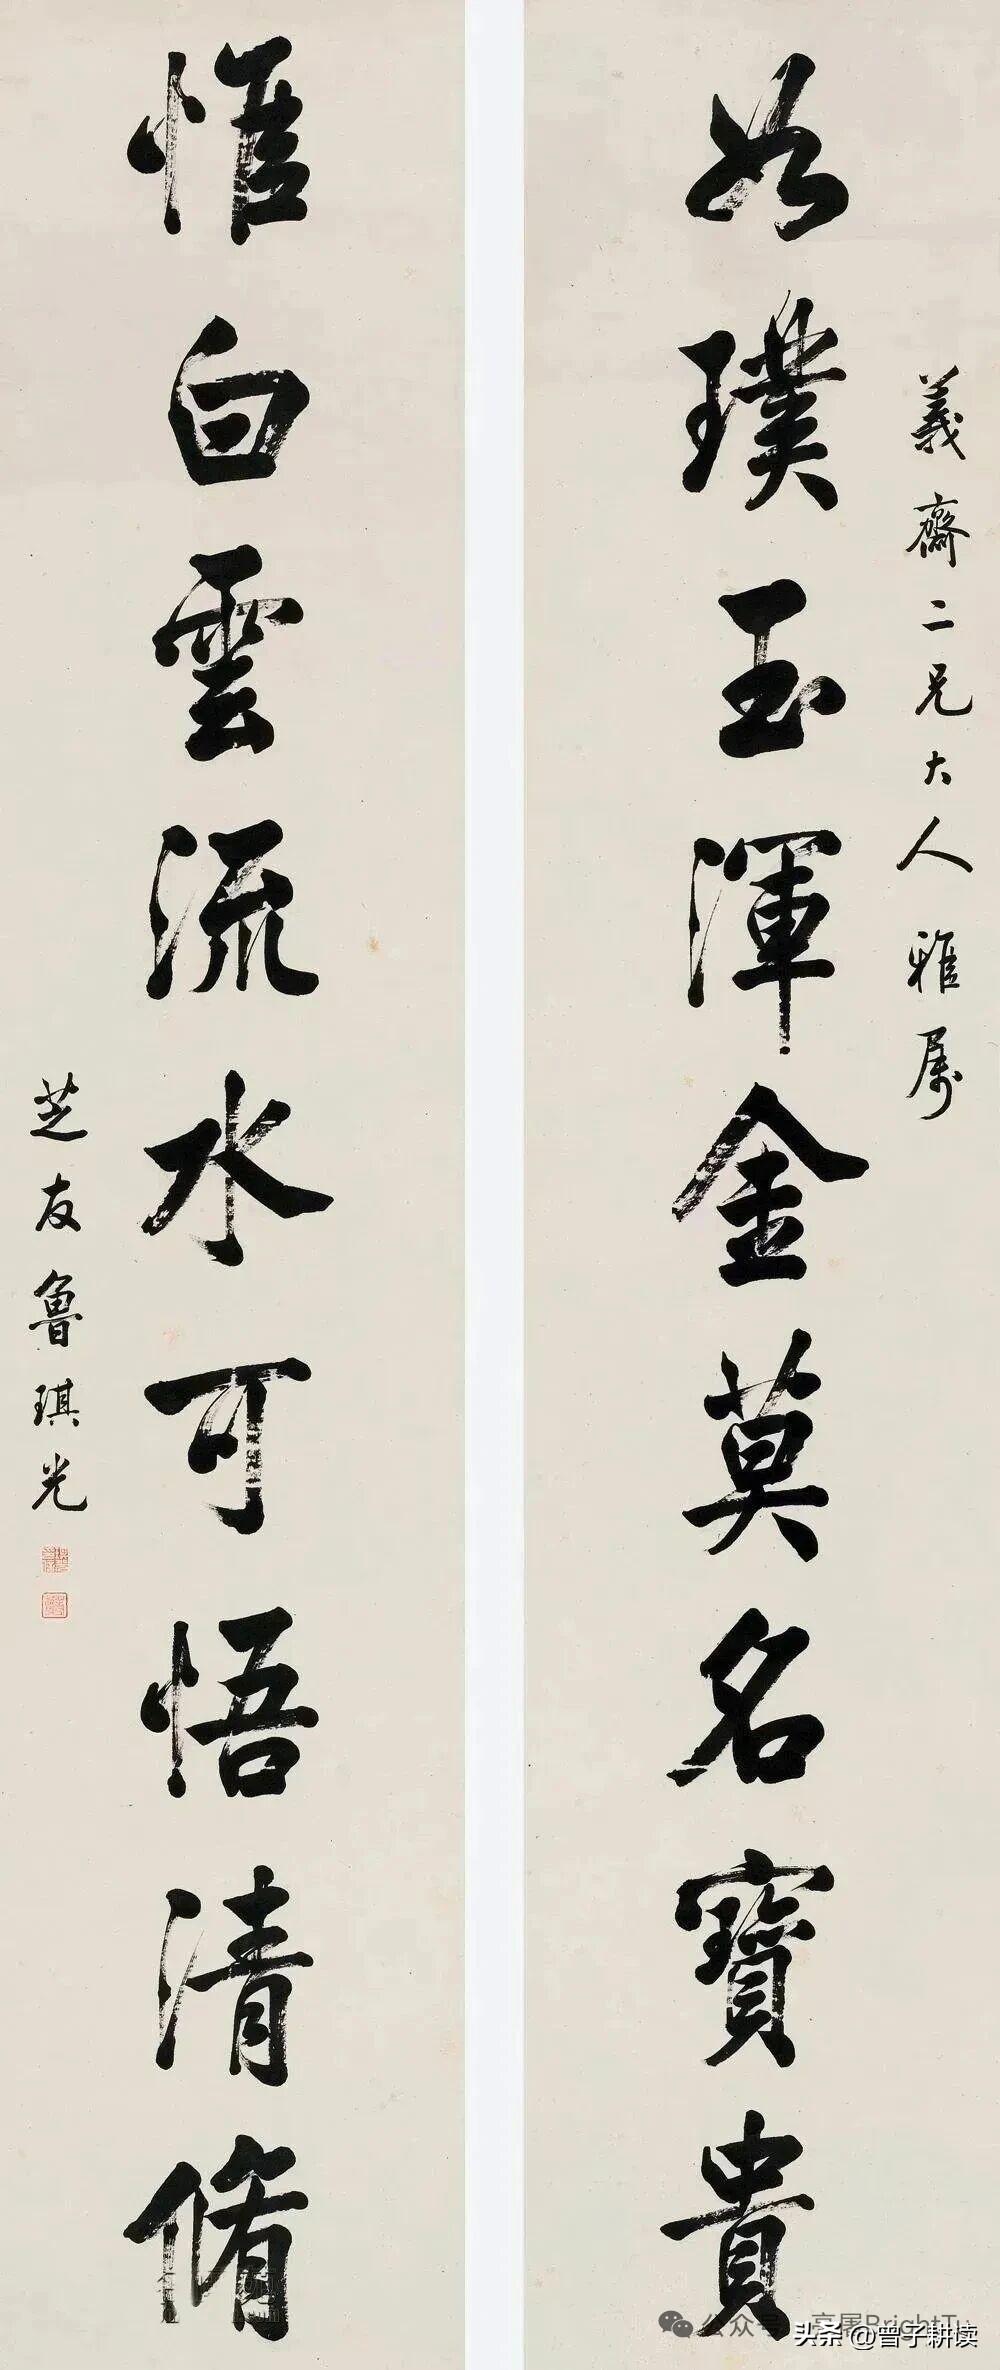 義齋二兄大人雅属
如璞玉渾金莫名寶貴
惟白雲流水可悟清脩
芝友魯琪光
公众号
亮屠BrightTu
头条@曾子耕读